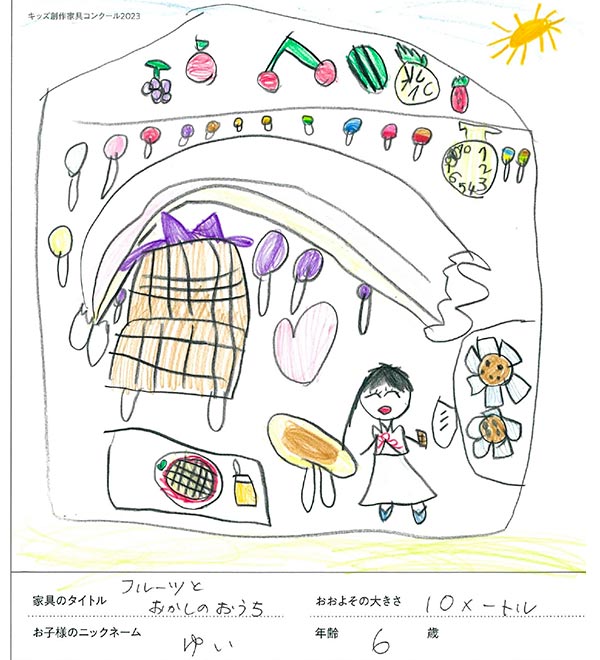 キッズ創作家具コンクール2023
家具のタイトル フルーツと
おかしのおうち
おおよその大きさ 10メートル
お子様のニックネーム ゆい
年齢 6 歳